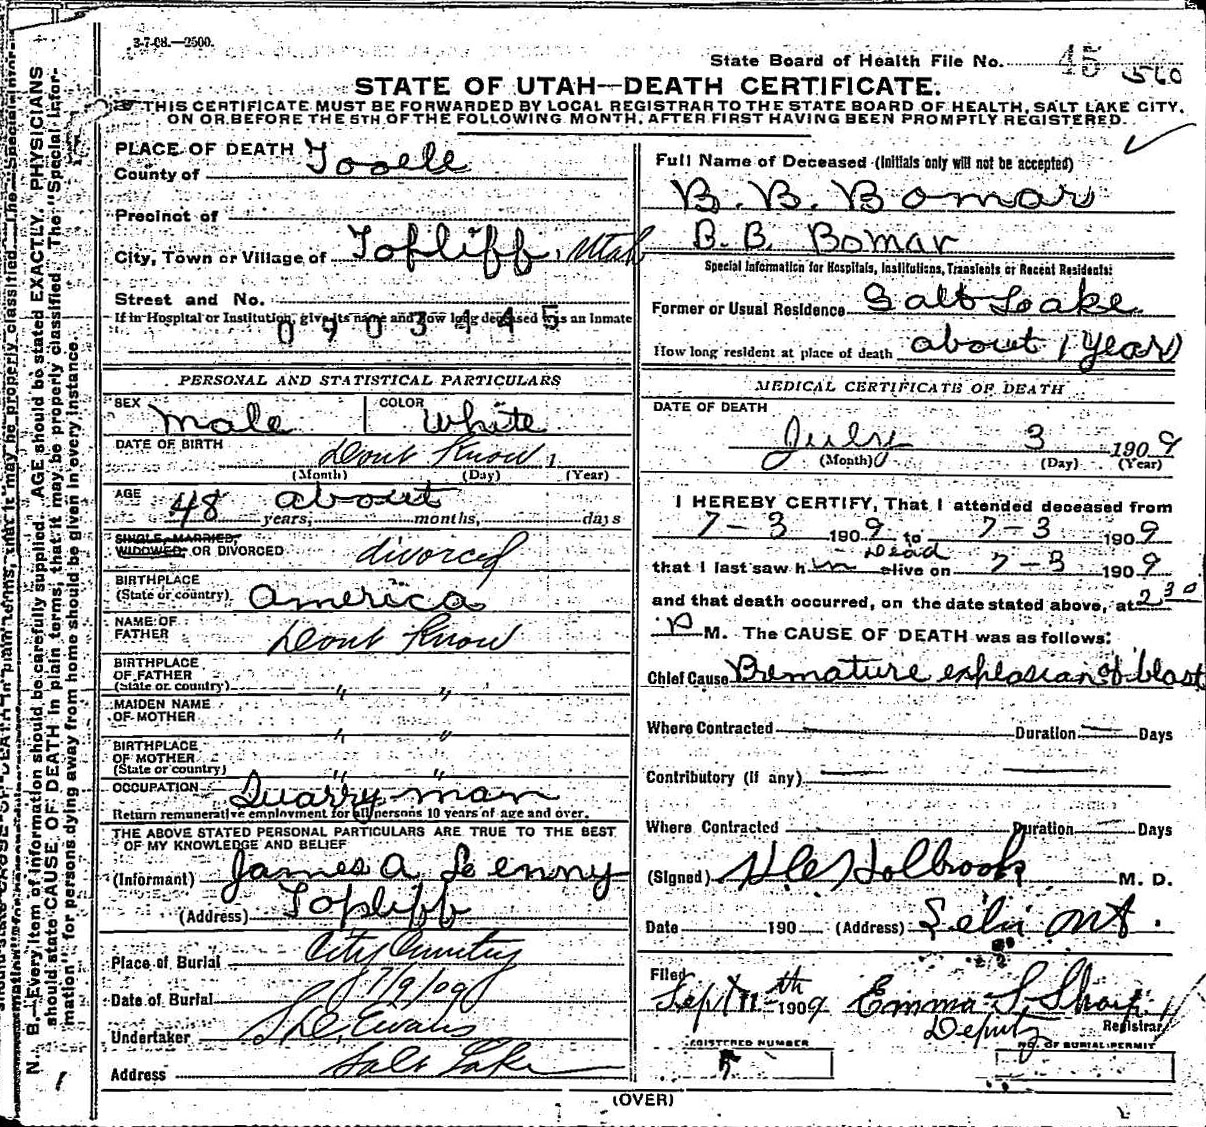 3-7-08.—2500.
State Board of Health File No. 45 560
STATE OF UTAH—DEATH CERTIFICATE.
THIS CERTIFICATE MUST BE FORWARDED BY LOCAL REGISTRAR TO THE STATE BOARD OF HEALTH, SALT LAKE CITY,
ON OR BEFORE THE 5TH OF THE FOLLOWING MONTH, AFTER FIRST HAVING BEEN PROMPTLY REGISTERED.
N. B.—Every item of information should be carefully supplied. AGE should be stated EXACTLY. PHYSICIANS
should state CAUSE OF DEATH in plain terms, that it may be properly classified. The "Special Infor-
mation" for persons dying away from home should be given in every instance.
PLACE OF DEATH
County of Tooele
Precinct of
City, Town or Village of Topliff, Utah
Street and No.
If in Hospital or Institution, give its name and how long deceased was an Inmate
0903445
PERSONAL AND STATISTICAL PARTICULARS
SEX Male COLOR White
DATE OF BIRTH Dont Know 1
(Month) (Day) (Year)
AGE 48 about
years, months, days
SINGLE, MARRIED,
WIDOWED, OR DIVORCED divorced
BIRTHPLACE
(State or country) America
NAME OF
FATHER Dont Know
BIRTHPLACE
OF FATHER
(State or country) " "
MAIDEN NAME
OF MOTHER " "
BIRTHPLACE
OF MOTHER
(State or country) " "
OCCUPATION Quarry man
Return remunerative employment for all persons 10 years of age and over.
THE ABOVE STATED PERSONAL PARTICULARS ARE TRUE TO THE BEST
OF MY KNOWLEDGE AND BELIEF
(Informant) James A
(Address) Topliff
Place of Burial City Cemetery
Date of Burial 7/9/09
Undertaker Evans
Address Salt Lake
Full Name of Deceased (Initials only will not be accepted)
B. B. Bomar
B. B. Bomar
Special Information for Hospitals, Institutions, Transients or Recent Residents:
Former or Usual Residence Salt Loake
How long resident at place of death about 1 Year
MEDICAL CERTIFICATE OF DEATH
DATE OF DEATH
July 3 1909
(Month) (Day) (Year)
I HEREBY CERTIFY, That I attended deceased from
7-3 1909 to 7-3 1909
Dead
that I last saw him alive on 7-3 1909
and that death occurred, on the date stated above, at 2 30
P M. The CAUSE OF DEATH was as follows:
Chief Cause Premature explosian of blast
Where Contracted Duration Days
Contributory (if any)
Where Contracted Duration Days
(Signed) Holbrook M. D.
Date 190 (Address) Lehi
Filed
Sept 11th 1909 Emma S Sharp
Deputy Registrar
REGISTERED NUMBER NO. OF BURIAL PERMIT
5
(OVER)